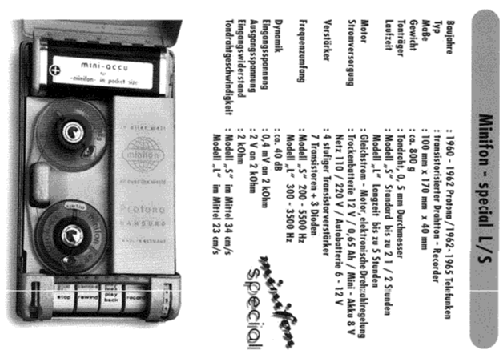 Minifon - special L/S
Baujahre : 1960 - 1962 Protona /1962- 1965 Telefunken
Typ : transistorisierter Drahtton - Recorder
Maße : 100 mm x 170 mm x 40 mm
Gewicht : ca. 800 g
Tonträger : Tondraht, 0, 5 mm Durchmesser
Laufzeit : Modell „S" Standard bis zu 2 1 / 2 Stunden
Modell „L" Langzeit bis zu 5 Stunden
Motor : Gleichstrom - Motor, elektronische Drehzahlregelung
Stromversorgung : Trockenbatterie 12 V / 0,65 Ah / Mini - Akku 8 V
Netz 110 / 220 V / Autobatterie 6 - 12 V
Verstärker : 4 stufiger Transistorverstärker
7 Transistoren + 5 Dioden
Frequenzumfang : Modell „S" 200 - 5500 Hz
Modell „L" 300 - 3500 Hz
Dynamik : ca. 40 dB
Eingangsspannung : 0,4 mV an 2 kOhm
Ausgangsspannung : 2 V an 2 kOhm
Eingangswiderstand : 2 kOhm
Tondrahtgeschwindigkeit : Modell „S" im Mittel 34 cm/s
Modell „L" im Mittel 23 cm/s
minifon
special
mini-accu
for
minifon
in pocket size
minifon
PROTONA
HAMBURG
stop
rewind
play
back
record